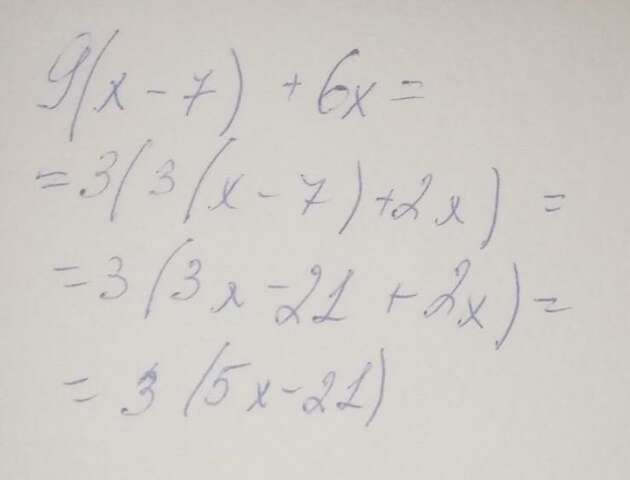 9(x-7) + 6x =
= 3(3(x-7)+2x) =
= 3(3x-21+2x) =
= 3(5x-21)